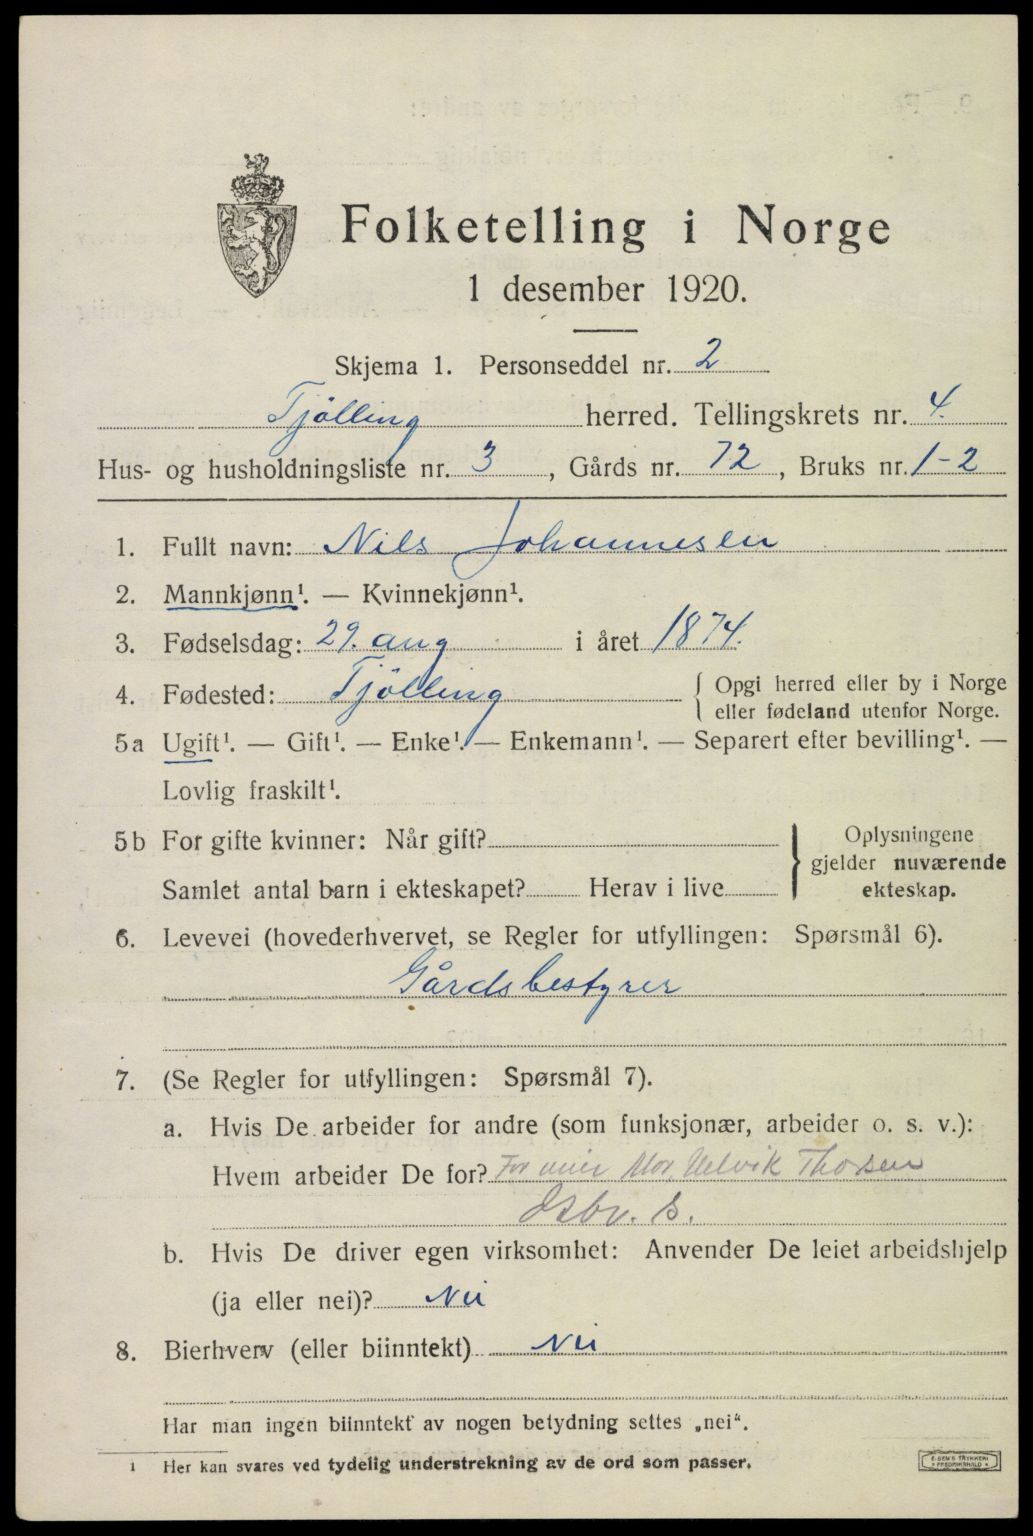 Folketelling i Norge
1 desember 1920.
Skjema 1. Personseddel nr. 2
Tjølling herred. Tellingskrets nr. 4.
Hus- og husholdningsliste nr. 3, Gårds nr. 72, Bruks nr. 1-2
1. Fullt navn: Nils Johannesen
2. Mannkjønn¹. — Kvinnekjønn¹.
3. Fødselsdag: 29. aug i året 1874.
4. Fødested: Tjölling { Opgi herred eller by i Norge
eller fødeland utenfor Norge.
5a Ugift¹. — Gift¹. — Enke¹. — Enkemann¹. — Separert efter bevilling¹. —
Lovlig fraskilt¹.
5b For gifte kvinner: Når gift?
Samlet antal barn i ekteskapet? Herav i live
} Oplysningene
gjelder nuværende
ekteskap.
6. Levevei (hovederhvervet, se Regler for utfyllingen: Spørsmål 6).
Gårdsbestyrer
7. (Se Regler for utfyllingen: Spørsmål 7).
a. Hvis De arbeider for andre (som funksjonær, arbeider o. s. v.):
Hvem arbeider De for? For Mor,
b. Hvis De driver egen virksomhet: Anvender De leiet arbeidshjelp
(ja eller nei)? Nei
8. Bierhverv (eller biinntekt) Nei
Har man ingen biinntekt av nogen betydning settes „nei“.
1 Her kan svares ved tydelig understrekning av de ord som passer.
E. SEM'S TRYKKERI
* FREDRIKSHALD *